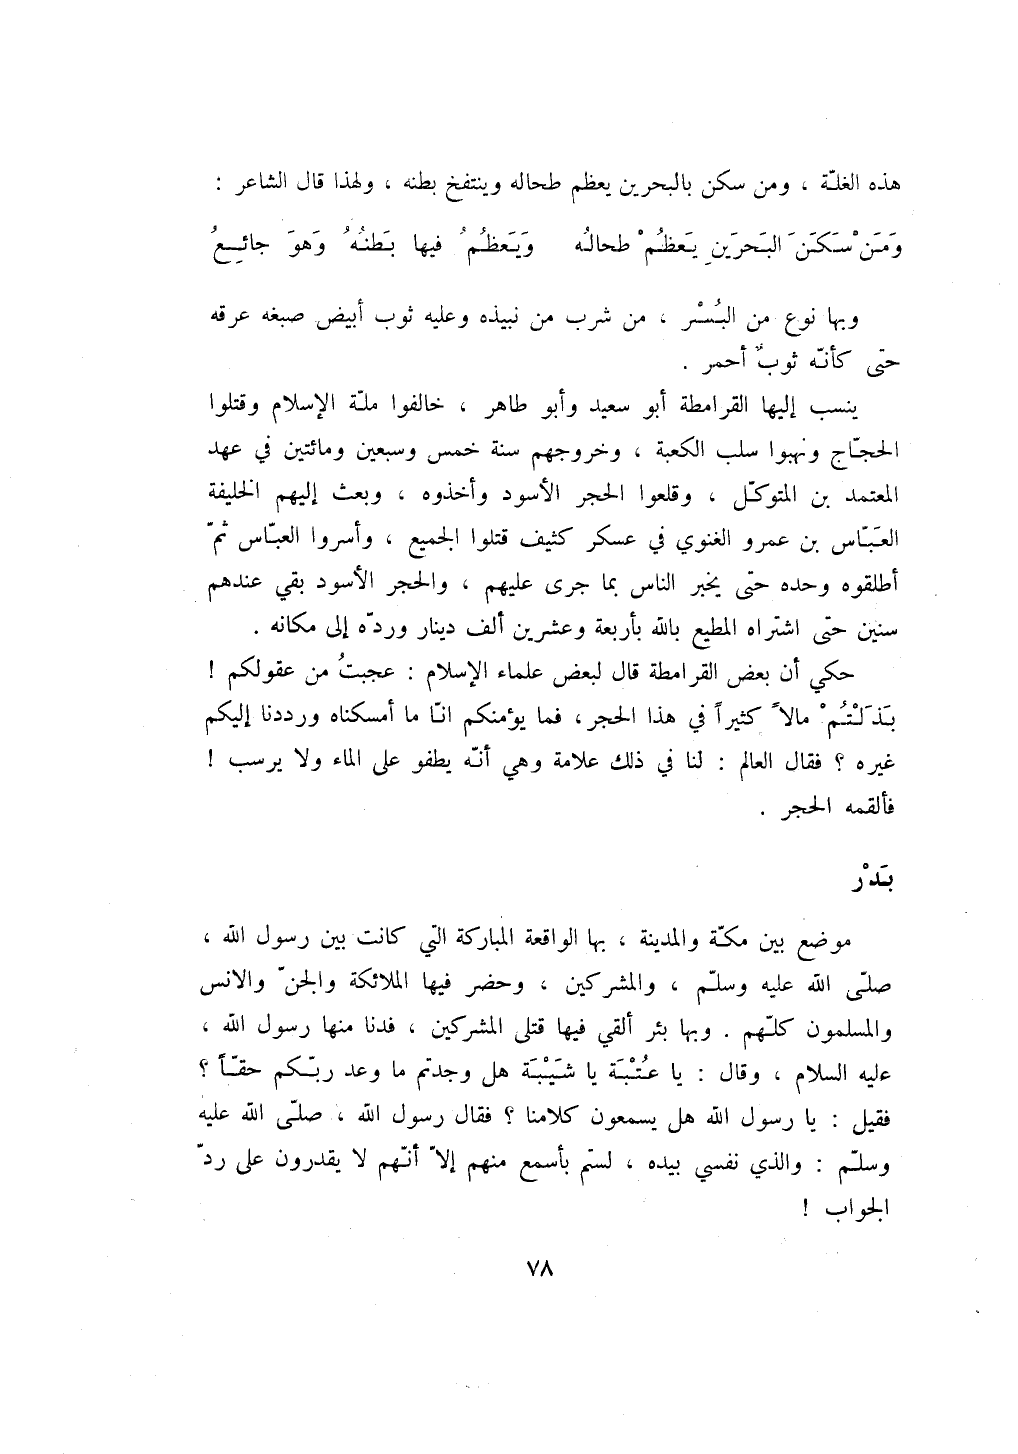 هذه الغلّة ، ومن سكن بالبحرين يعظم طحاله وينتفخ بطنه ، ولهذا قال الشاعر :
وَمَنْ سَكَنَ البَحرَينِ يَعظُمْ طحالُه وَيَعظُمُ فيها بَطنُهُ وَهوَ جائِعُ
وبها نوع من البُسْر ، من شرب من نبيذه وعليه ثوب أبيض صبغه عرقه
حتى كأنّه ثوبٌ أحمر .
ينسب إليها القرامطة أبو سعيد وأبو طاهر ، خالفوا ملّة الإسلام وقتلوا
الحجّاج ونهبوا سلب الكعبة ، وخروجهم سنة خمس وسبعين ومائتين في عهد
المعتمد بن المتوكّل ، وقلعوا الحجر الأسود وأخذوه ، وبعث إليهم الخليفة
العَبّاس بن عمرو الغنوي في عسكر كثيف قتلوا الجميع ، وأسروا العبّاس ثمّ
أطلقوه وحده حتى يخبر الناس بما جرى عليهم ، والحجر الأسود بقي عندهم
سنين حتى اشتراه المطيع بالله بأربعة وعشرين ألف دينار وردّه إلى مكانه .
حكي أن بعض القرامطة قال لبعض علماء الإسلام : عجبتُ من عقولكم !
بَذَلْتُمْ مالاً كثيراً في هذا الحجر ، فما يؤمنكم انّا ما أمسكناه ورددنا إليكم
غيره ؟ فقال العالم : لنا في ذلك علامة وهي أنّه يطفو على الماء ولا يرسب !
فألقمه الحجر .
بَدْر
موضع بين مكّة والمدينة ، بها الواقعة المباركة التي كانت بين رسول الله ،
صلّى الله عليه وسلّم ، والمشركين ، وحضر فيها الملائكة والجنّ والانس
والمسلمون كلّهم . وبها بئر ألقي فيها قتلى المشركين ، فدنا منها رسول الله ،
عليه السلام ، وقال : يا عُتْبَة يا شَيْبَة هل وجدتم ما وعد ربّكم حقّاً ؟
فقيل : يا رسول الله هل يسمعون كلامنا ؟ فقال رسول الله ، صلّى الله عليه
وسلّم : والذي نفسي بيده ، لستم بأسمع منهم إلاّ أنّهم لا يقدرون على ردّ
الجواب !
٧٨